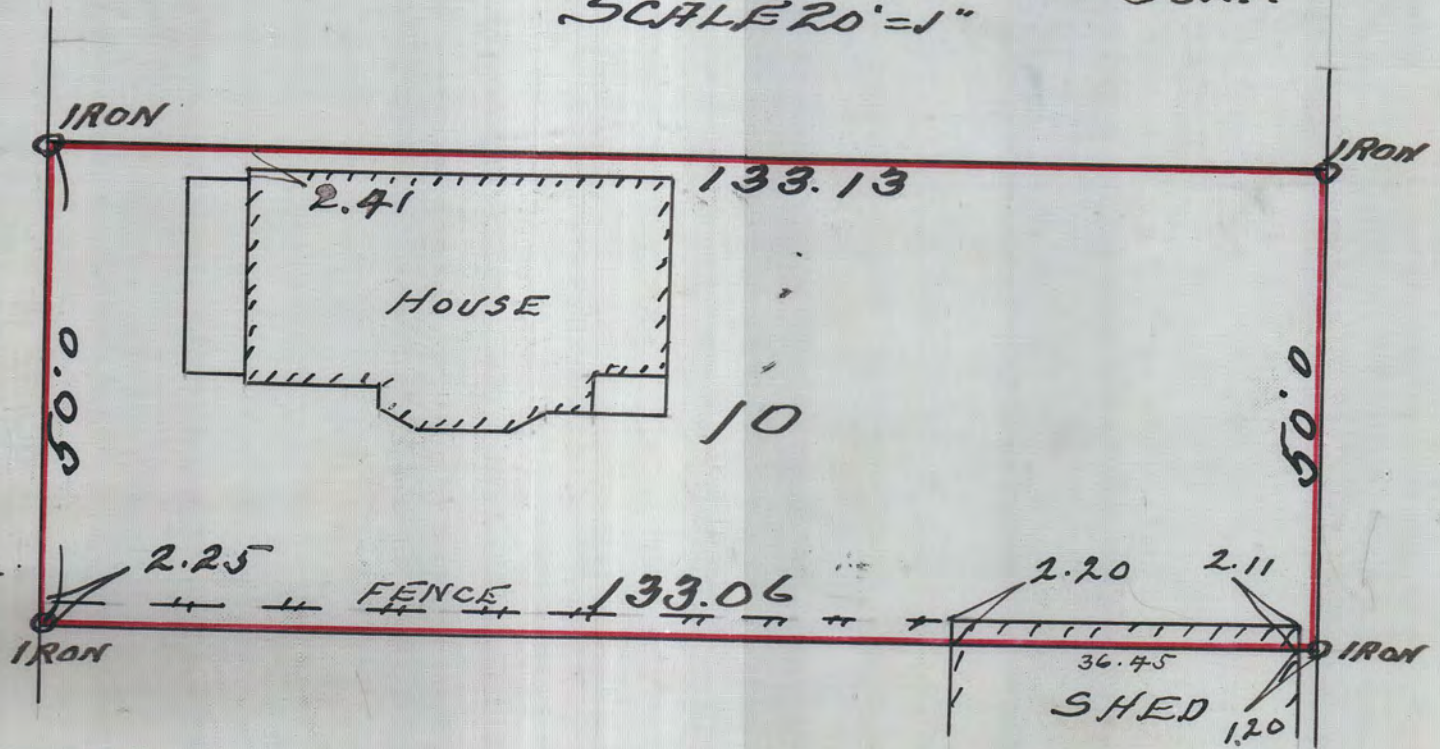 SCALE 20'=1"
IRON
IRON
133.13
2.41
HOUSE
50.0
50.0
10
2.25
FENCE 133.06
2.20 2.11
IRON
IRON
36.45
SHED
1.20